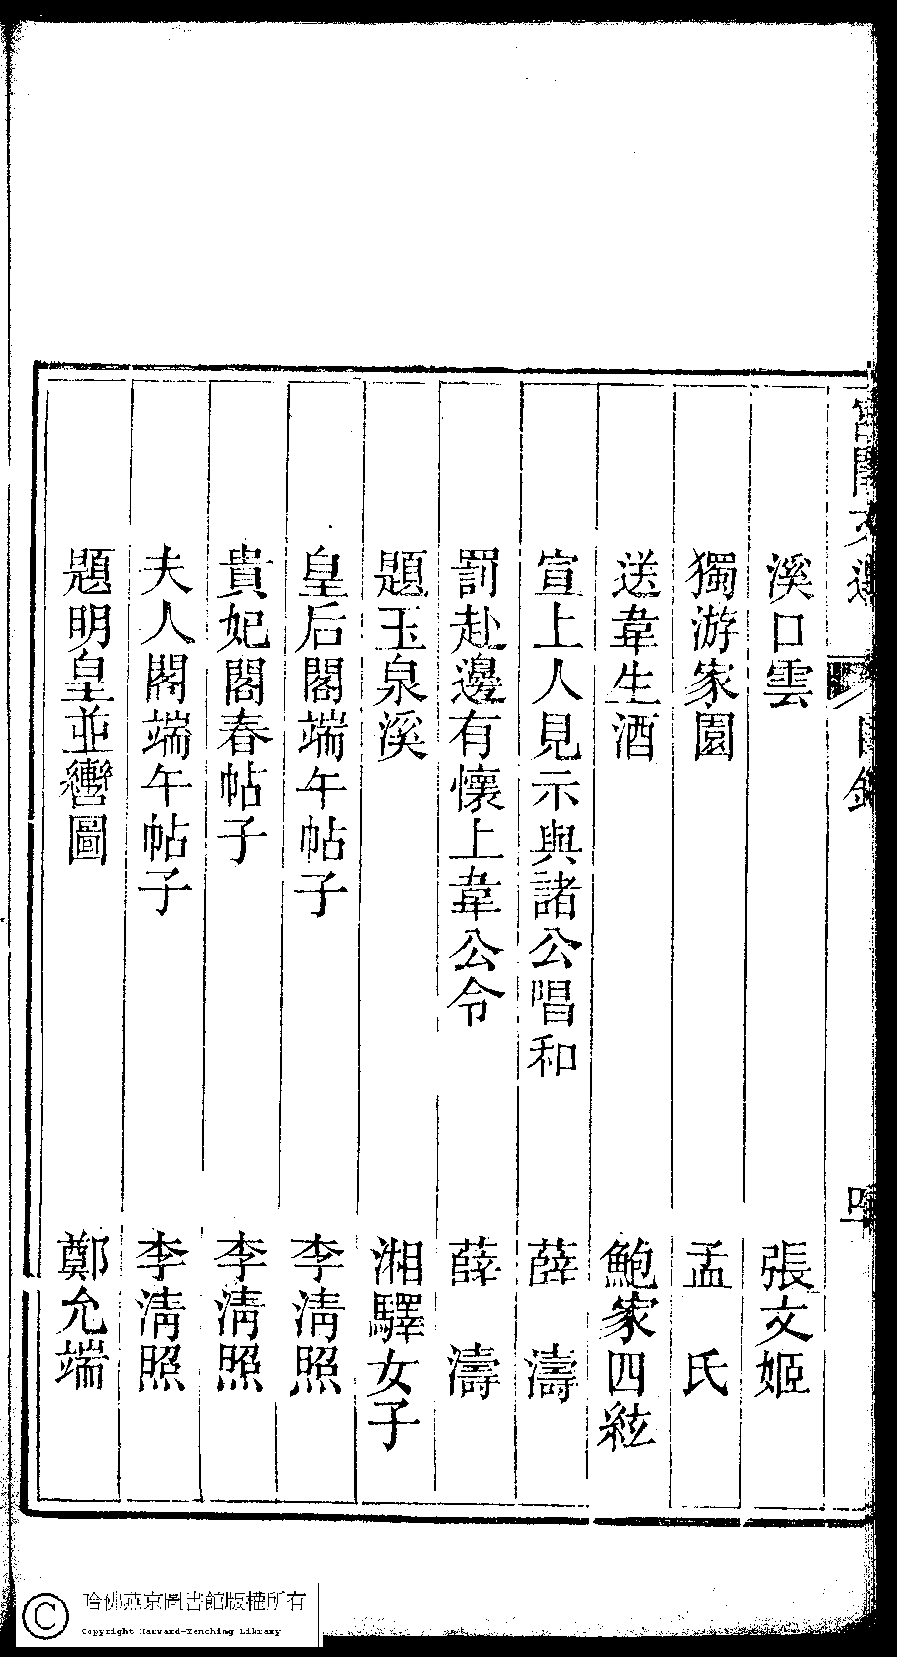 宮閨文選 目錄 四十
溪口雲 張文姬
獨游家園 孟 氏
送韋生酒 鮑家四絃
宣上人見示與諸公唱和 薛 濤
罰赴邊有懷上韋公令 薛 濤
題玉泉溪 湘驛女子
皇后閣端午帖子 李淸照
貴妃閣春帖子 李淸照
夫人閣端午帖子 李淸照
題明皇並轡圖 鄭允端
哈佛燕京圖書館版權所有
Copyright Harvard-Yenching Library